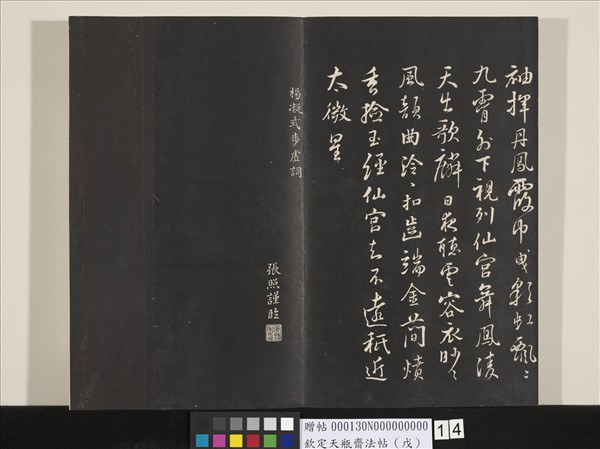 袖揮丹鳳霞巾曳彩虹飄〻
九霄外下視列仙宮舞鳳凌
天出歌麟日夜聽雲容衣眇〻
風韻曲泠〻扣齒端金簡燌
香撿玉經仙官去不遠秖近
太微星
楊凝式步虛詞
張照謹臨
贈帖 000130N000000000
欽定天瓶齋法帖（戊）
14